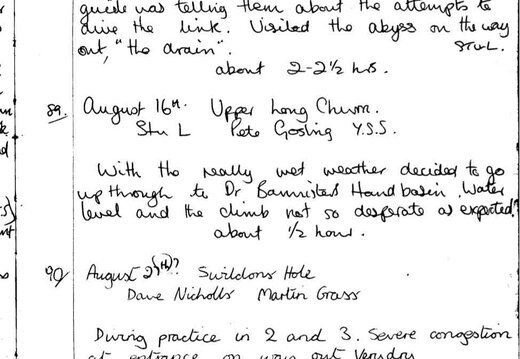 guide was telling them about the attempts to
dive the link. Visited the abyss on the way
out, "the drain". Stu L.
about 2-2½ hrs.
89. August 16th. Upper Long Churn.
Stu L Pete Gosling Y.S.S.
With the really wet weather decided to go
up through to Dr. Bannisters Handbasin. Water
level and the climb not so desperate as expected.
about ½ hour.
90/ August 2 (th)? Swildons Hole
Dave Nicholls Martin Grass
During practice in 2 and 3. Severe congestion
at entrance on way out